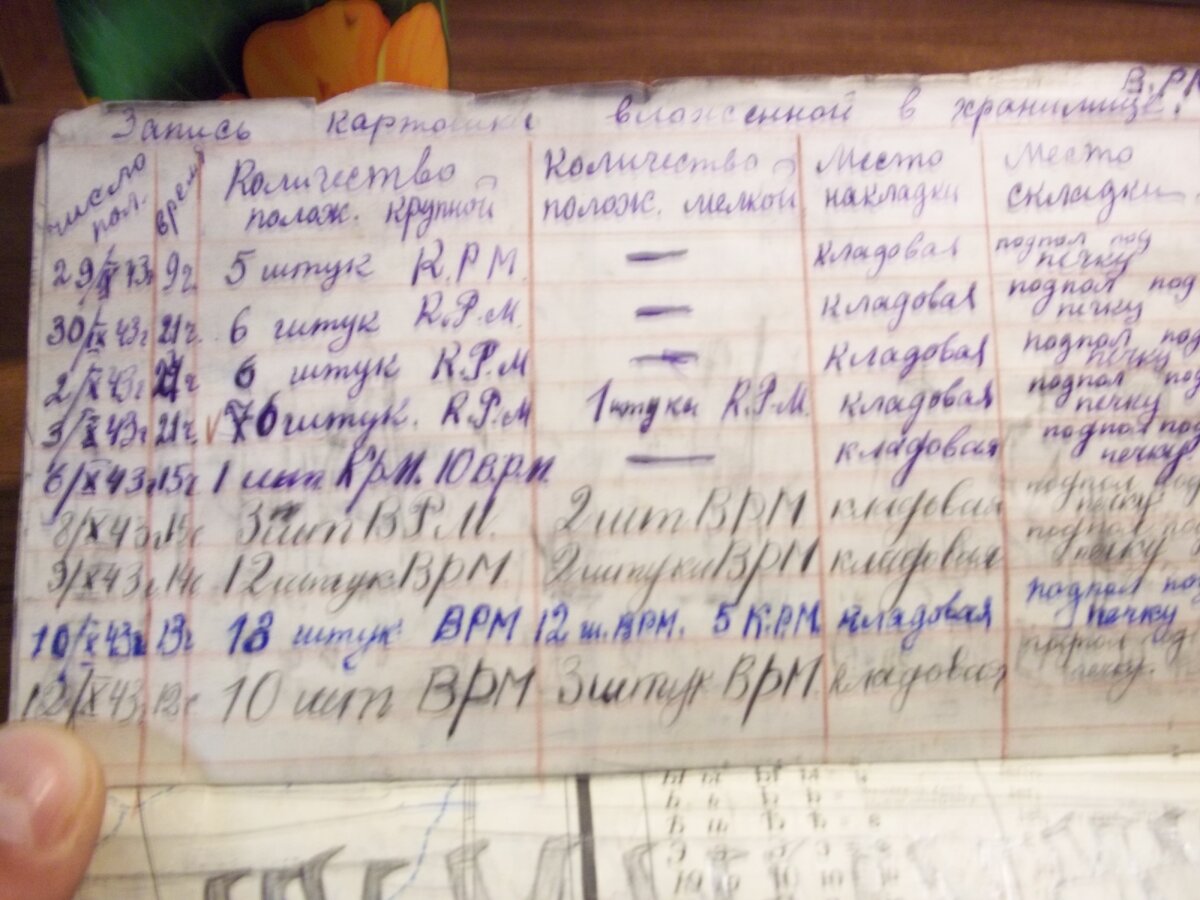 В.РМ
Запись картошки вложенной в хранилище.
число пол. время Количество полож. крупной Количество полож. мелкой Место накладки Место складки
29/IX 43г 9ч. 5 штук К.РМ. — кладовая подпол под печку
30/IX 43г 21ч. 6 штук К.Р.М. — кладовая подпол под печку
2/X 43г 21ч 6 штук К.Р.М — кладовая подпол под печку
3/X 43г 21ч. 6 штук. К.Р.М 1 штука К.Р.М. кладовая подпол под печку
6/X 43г. 15ч 1 шт. КРМ. 10 ВРМ. — кладовая подпол под печку
8/X 43г 15ч 3 шт ВРМ. 2 шт ВРМ кладовая подпол под печку
9/X 43г 14ч 12 штук ВРМ 2 штуки ВРМ кладовая подпол под печку
10/X 43г 13ч 18 штук ВРМ 12 ш. ВРМ. 5 К.РМ. кладовая подпол под печку
12/X 43г. 12ч 10 шт ВРМ 3 штук ВРМ. кладовая подпол под печку.